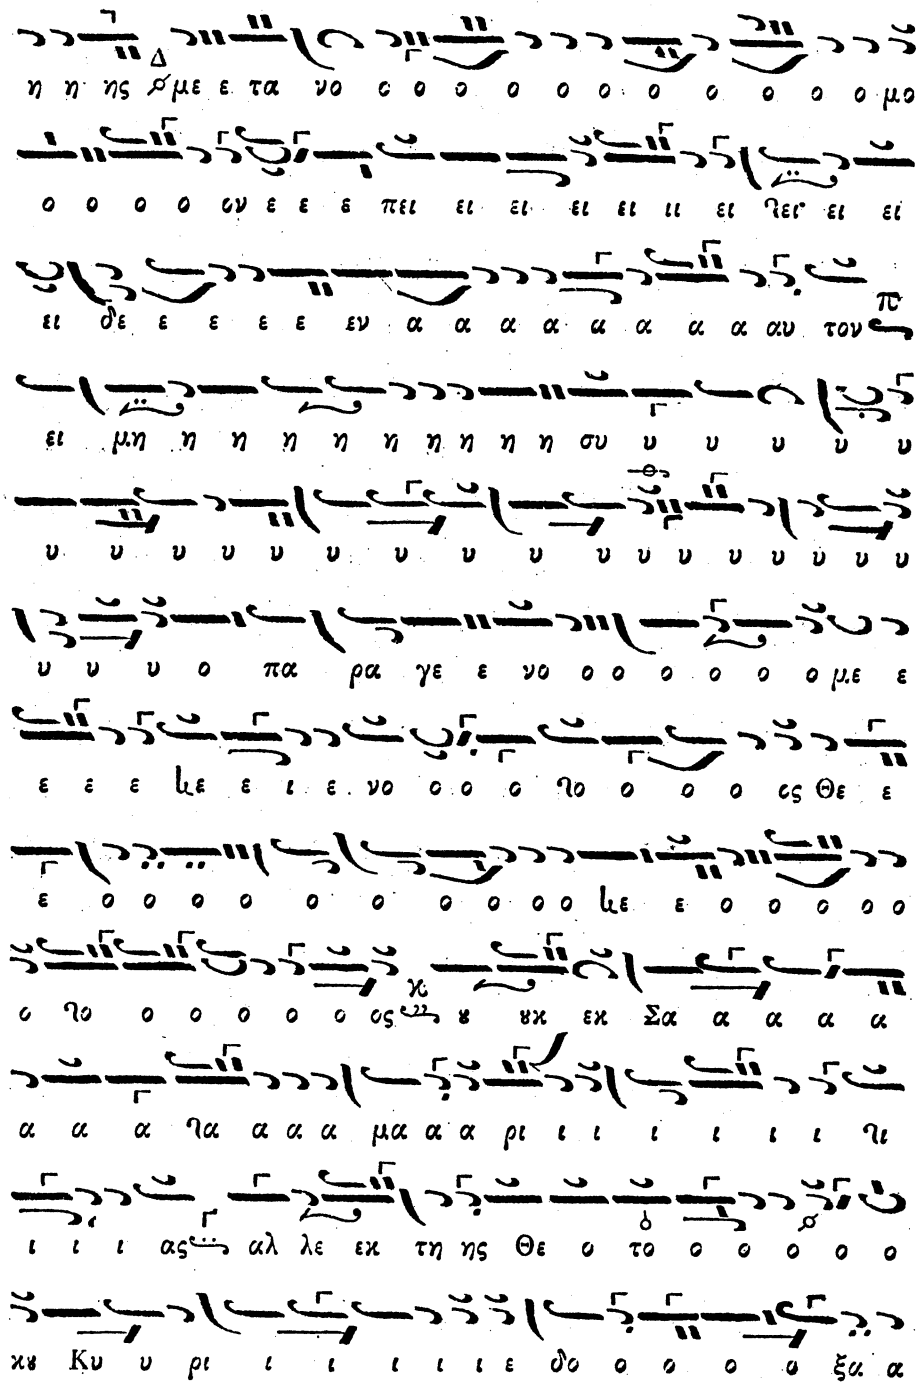 η η ης με ε τα νο ο ο ο ο ο ο ο ο ο ο ο μο
ο ο ο ο ον ε ε ε πει ει ει ει ει ει ει ει ει
ει δε ε ε ε ε εν α α α α α α α α αυ τον
ει μη η η η η η η η η συ υ υ υ υ υ
υ υ υ υ υ υ υ υ υ υ υ υ υ υ υ υ
υ υ υ ο πα ρα γε ε νο ο ο ο ο ο ο με ε
ε ε ε κε ε ι ε νο ο ο ο ο ο ο ος Θε ε
ε ο ο ο ο ο ο ο ο ο ο κε ε ο ο ο ο ο
ο ο ο ο ο ο ο ος ȣ ȣκ εκ Σα α α α α
α α α α α α α μα α α ρι ι ι ι ι ι ι
ι ι ι ας αλ λε εκ τη ης Θε ο το ο ο ο ο ο
κȣ Κυ υ ρι ι ι ι ι ι ε δο ο ο ο ο ξα α